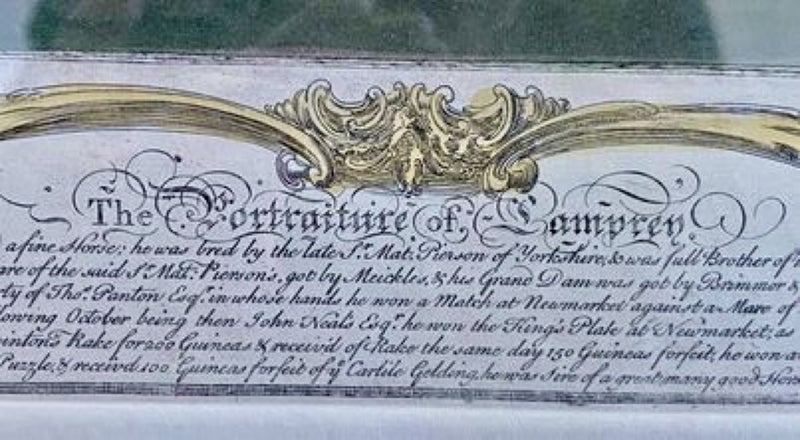 The Portraiture of Lamprey.
a fine Horse; he was bred by the late Sr. Mat: Pierson of Yorkshire, & was full Brother of
are of the said Sr. Mat: Pierson's, got by Meickles, & his Grand Dam was got by Brimmor &
ty of Thos. Panton Esqr. in whose hands he won a Match at Newmarket against a Mare of
lowing October being then John Neal's Esqr. he won the King's Plate at Newmarket; as
inton's Rake for 200 Guineas & receiv'd of Rake the same day 150 Guineas forfeit; he won a
Puzzle, & receiv'd 100 Guineas forfeit of ye Carlile Gelding, he was Sire of a great many good Hors